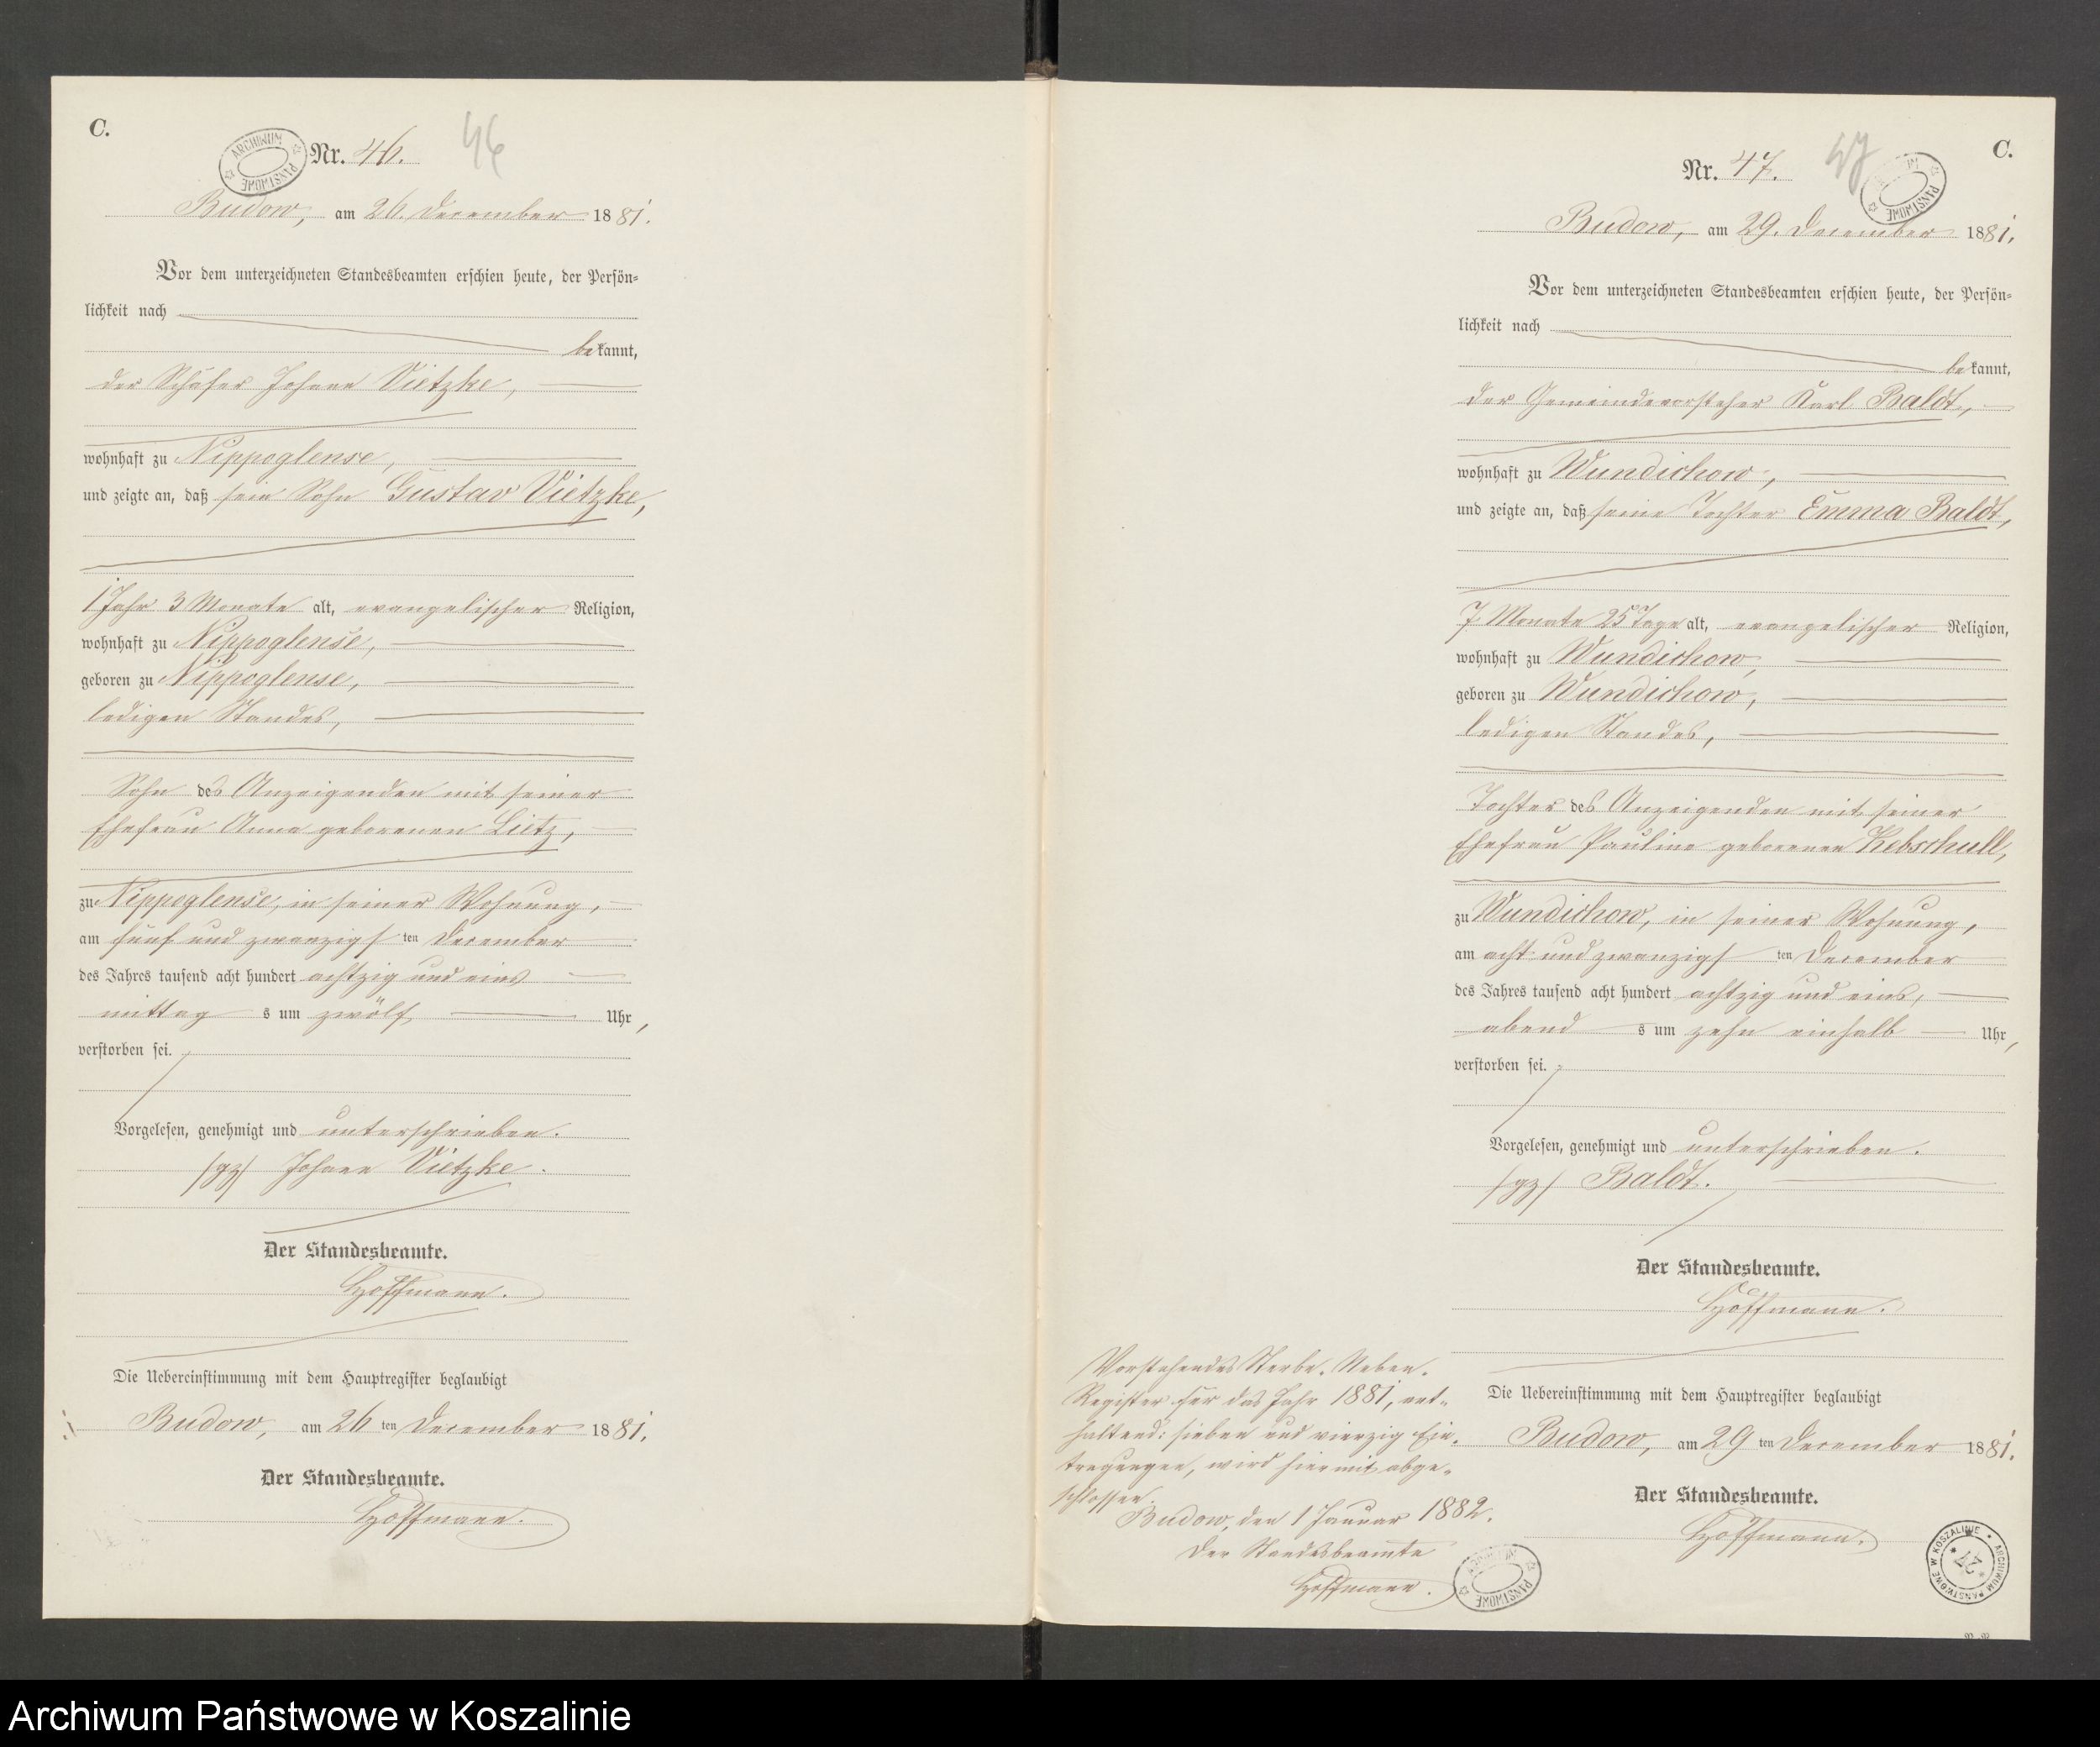 C.
ARCHIWUM PAŃSTWOWE
Nr. 46.
46
Budow, am 26. December 1881.
Vor dem unterzeichneten Standesbeamten erschien heute, der Persön-
lichkeit nach
bekannt,
der Schäfer Johann Vietzke,
wohnhaft zu Nippoglense,
und zeigte an, daß sein Sohn Gustav Vietzke,
1 Jahr 3 Monate alt, evangelischer Religion,
wohnhaft zu Nippoglense,
geboren zu Nippoglense,
ledigen Standes,
Sohn des Anzeigenden mit seiner
Ehefrau Anna geborenen Lietz,
zu Nippoglense, in seiner Wohnung,
am fünf und zwanzigsten December
des Jahres tausend acht hundert achtzig und eins
mittags um zwölf Uhr,
verstorben sei.
Vorgelesen, genehmigt und unterschrieben.
/gz/ Johann Vietzke.
Der Standesbeamte.
Hoffmann.
Die Uebereinstimmung mit dem Hauptregister beglaubigt
Budow, am 26ten December 1881.
Der Standesbeamte.
Hoffmann.
C.
Nr. 47.
47
PAŃSTWOWE
Budow, am 29. December 1881.
Vor dem unterzeichneten Standesbeamten erschien heute, der Persön-
lichkeit nach
bekannt,
der Gemeindevorsteher Karl Baldt,
wohnhaft zu Wundichow,
und zeigte an, daß seine Tochter Emma Baldt,
7 Monate 25 Tage alt, evangelischer Religion,
wohnhaft zu Wundichow,
geboren zu Wundichow,
ledigen Standes,
Tochter des Anzeigenden mit seiner
Ehefrau Pauline geborenen Kebschull,
zu Wundichow, in seiner Wohnung,
am acht und zwanzigsten December
des Jahres tausend acht hundert achtzig und eins,
abends um zehn einhalb Uhr,
verstorben sei.
Vorgelesen, genehmigt und unterschrieben.
/gz/ Baldt.
Der Standesbeamte.
Hoffmann.
Die Uebereinstimmung mit dem Hauptregister beglaubigt
Budow, am 29ten December 1881.
Der Standesbeamte.
Hoffmann.
Vorstehendes Sterbe-Neben-
Register für das Jahr 1881, ent-
haltend: sieben und vierzig Ein-
tragungen, wird hiermit abge-
schlossen.
Budow, den 1 Januar 1882.
Der Standesbeamte
Hoffmann.
ARCHIWUM PAŃSTWOWE
ARCHIWUM PAŃSTWOWE W KOSZALINIE
27
Archiwum Państwowe w Koszalinie